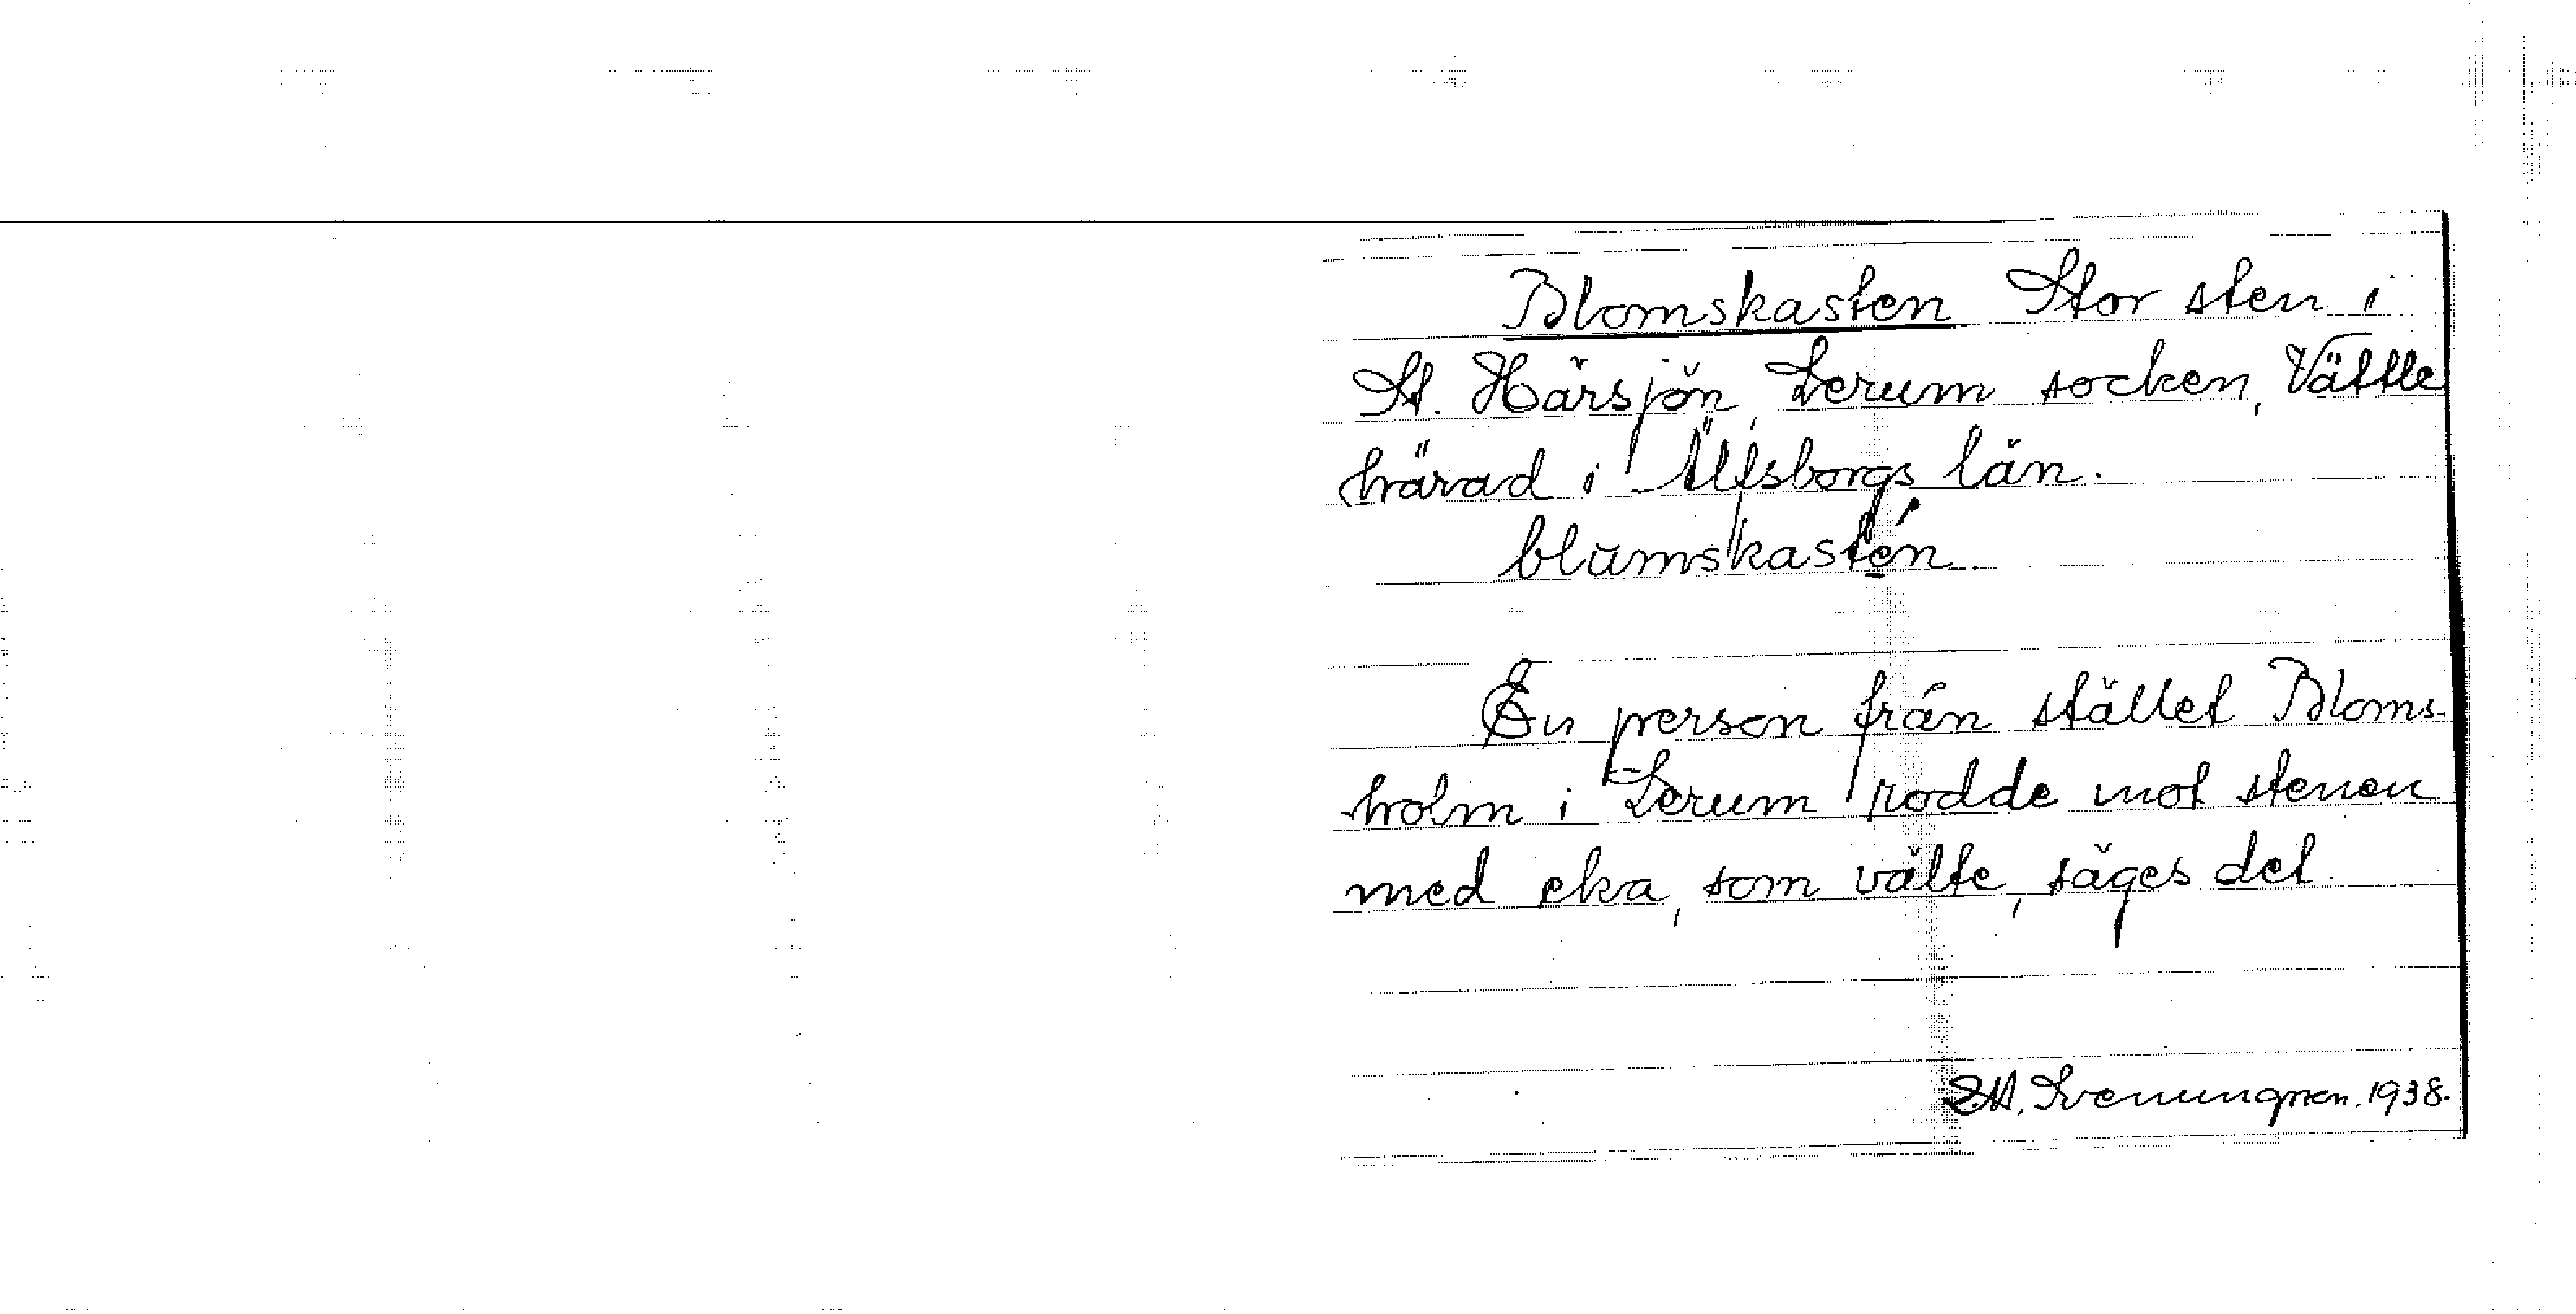 Blomskasten Stor sten i
St. Härsjön, Lerum socken, Vättle
härad i Älfsborgs län.
blumskastén
En person från stället Bloms-
holm i Lerum rodde mot stenen
med eka, som välte, säges det.
Svenungsson. 1938.